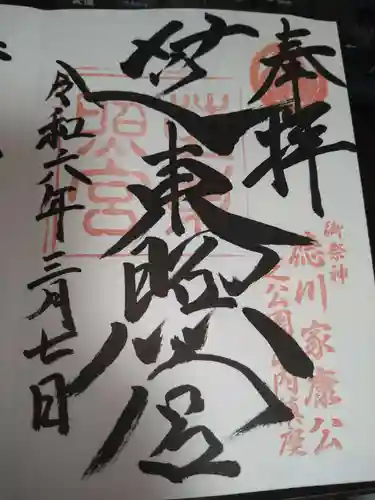 奉拝
御祭神
徳川家康公
芝公園内鎮座
芝東照宮
芝東照宮
令和六年三月七日